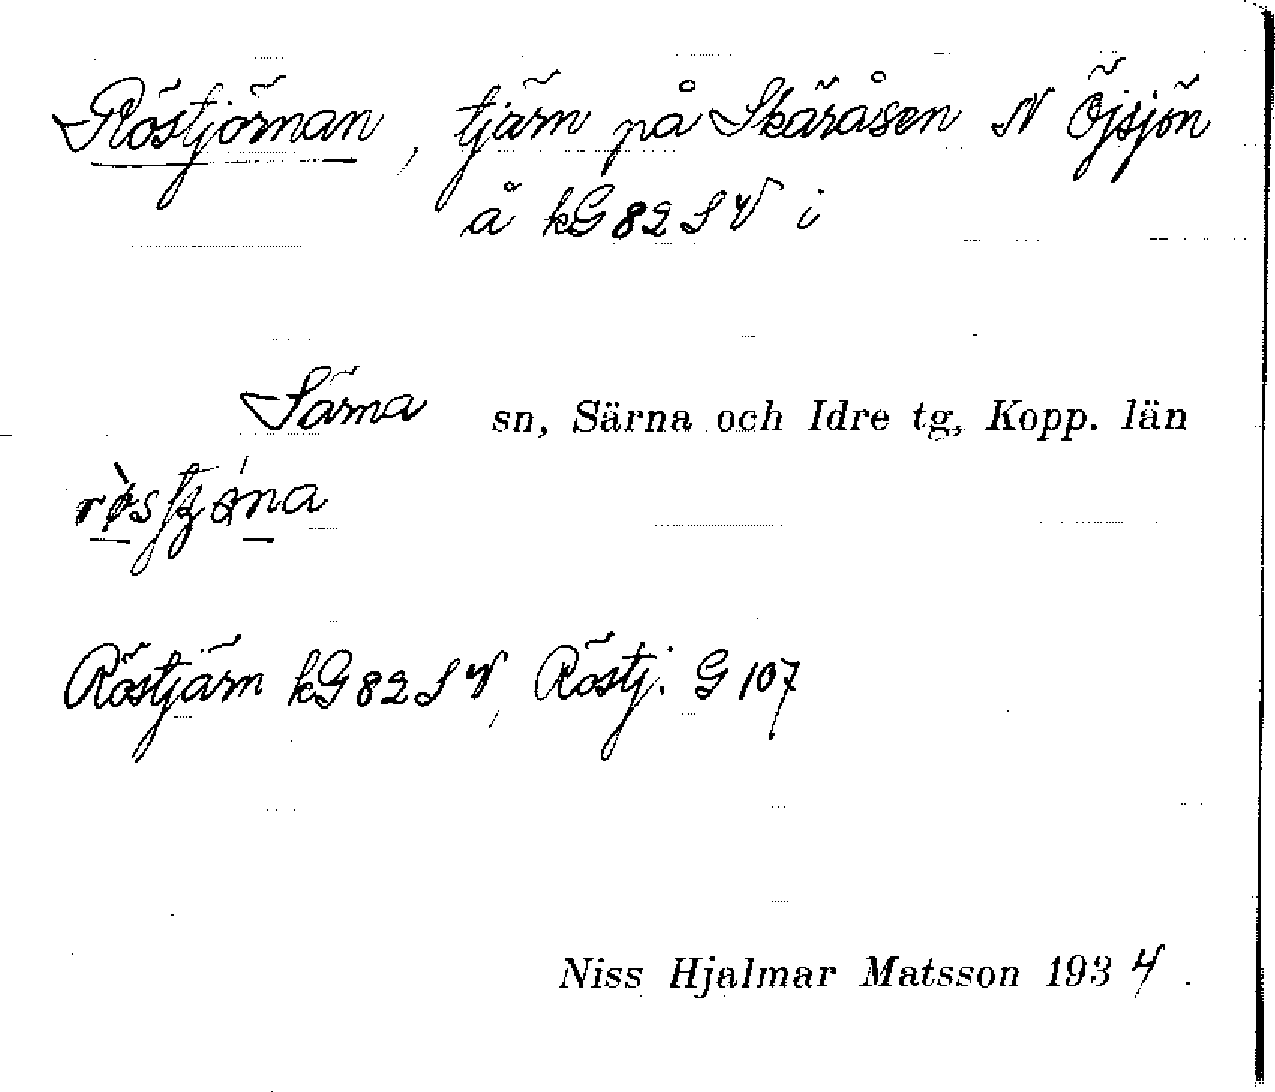 Röstjörnan, tjärn på Skäråsen N Öjsjön
å kG82SV i
Särna sn, Särna och Idre tg, Kopp. län
Röstjärn kG82SV, Röstj. G107
Niss Hjalmar Matsson 1934.